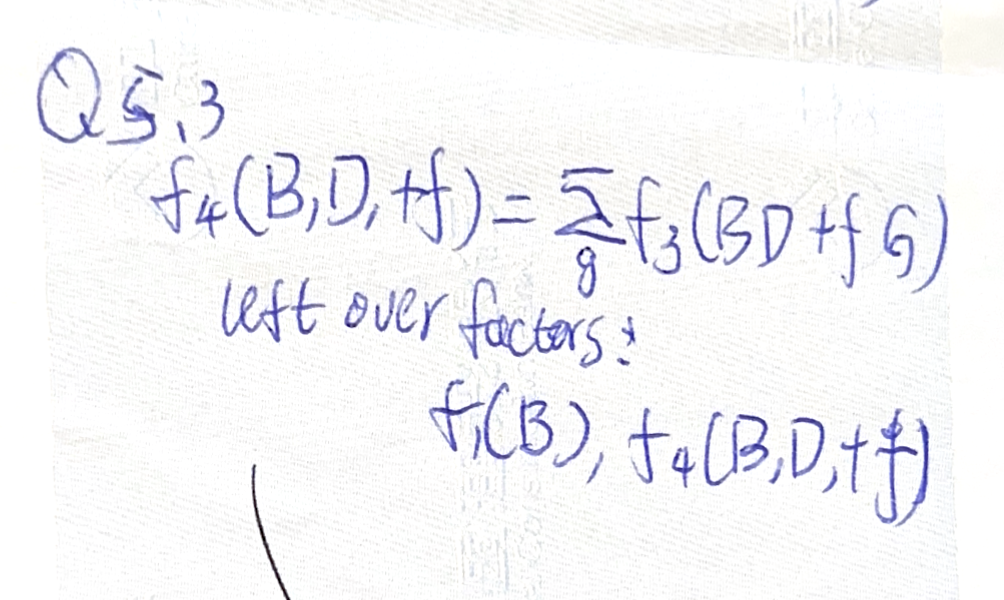 Q5.3
f₄(B,D,+f) = Σ_g f₃(BD+f G)
left over factors:
f₁(B), f₄(B,D,+f)